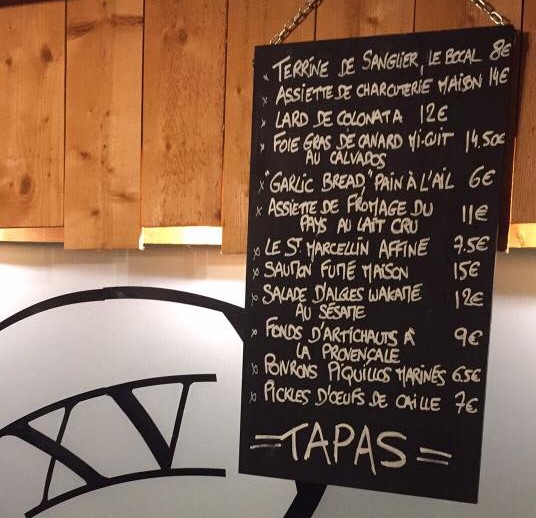 x TERRINE DE SANGLIER, LE BOCAL 8€
x ASSIETTE DE CHARCUTERIE MAISON 14€
x LARD DE COLONATA 12€
x FOIE GRAS DE CANARD MI-CUIT 14,50€
AU CALVADOS
x "GARLIC BREAD" PAIN À L'AIL 6€
x ASSIETTE DE FROMAGE DU 11€
PAYS AU LAIT CRU
x LE ST MARCELLIN AFFINE 7.5€
x SAUMON FUMÉ MAISON 15€
x SALADE D'ALGES WAKAME 12€
AU SÉSAME
x FONDS D'ARTICHAUTS À 9€
LA PROVENCALE
x POIVRONS PIQUILLOS MARINÉS 6.5€
x PICKLES D'OEUFS DE CAILLE 7€
=TAPAS=
XV